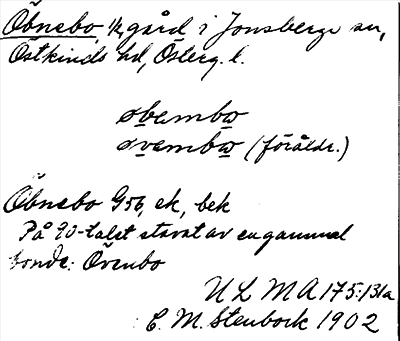 Öbnebo, 1/2 gård i Jonsbergs sn,
Östkinds hd, Österg. l.
øbembω
øvembω (föråldr.)
Öbnebo G56, ek, bek
På 90-talet stavat av en gammal
bonde: Övenbo
ULMA 175:131a
C. M. Stenbock 1902